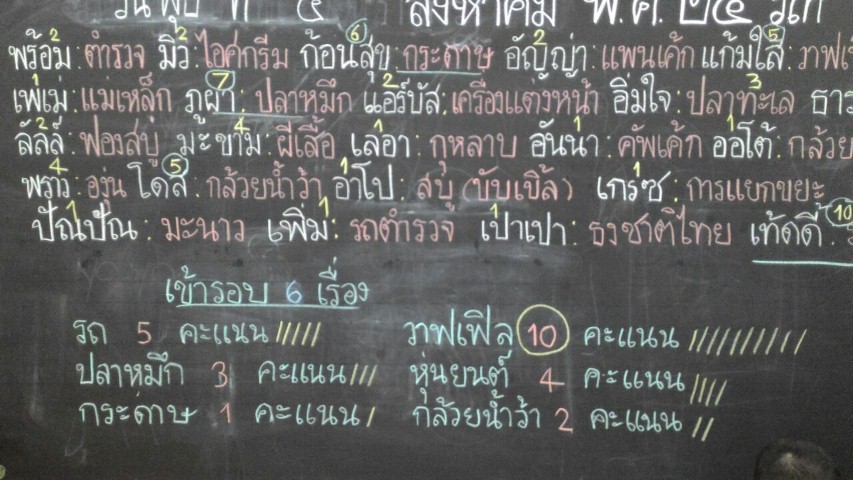 วันพุธ ที่ ๕ สิงหาคม พ.ศ. ๒๕
พร้อม2: ตำรวจ มิว2: ไอศกรีม ก้อนสุข6: กระดาษ อัญญ่า2: แพนเค้ก แก้มใส5: วาฟเ
เพ่เม่1: แม่เหล็ก ภูผา7: ปลาหมึก แอร์บัส2: เครื่องแต่งหน้า อิ่มใจ: ปลาทะเล3 ธาร
ลัลล์2: ฟองสบู่ มะขาม4: ผีเสื้อ เล่อา1: กุหลาบ อันนา1: คัพเค้ก ออโต้1: กล้วย
พราว4: องุ่น โดส5: กล้วยน้ำว้า อาโป1: สบู่ (ขับเขิ้ล) เกรซ1: การแยกขยะ
ปัณปัณ1: มะนาว เพิ่ม1: รถตำรวจ เปาเปา1: ธงชาติไทย เท็ดดี้10:
เข้ารอบ 6 เรื่อง
รถ 5 คะแนน ///// วาฟเฟิล 10 คะแนน //////////
ปลาหมึก 3 คะแนน /// หุ่นยนต์ 4 คะแนน ////
กระดาษ 1 คะแนน / กล้วยน้ำว้า 2 คะแนน //